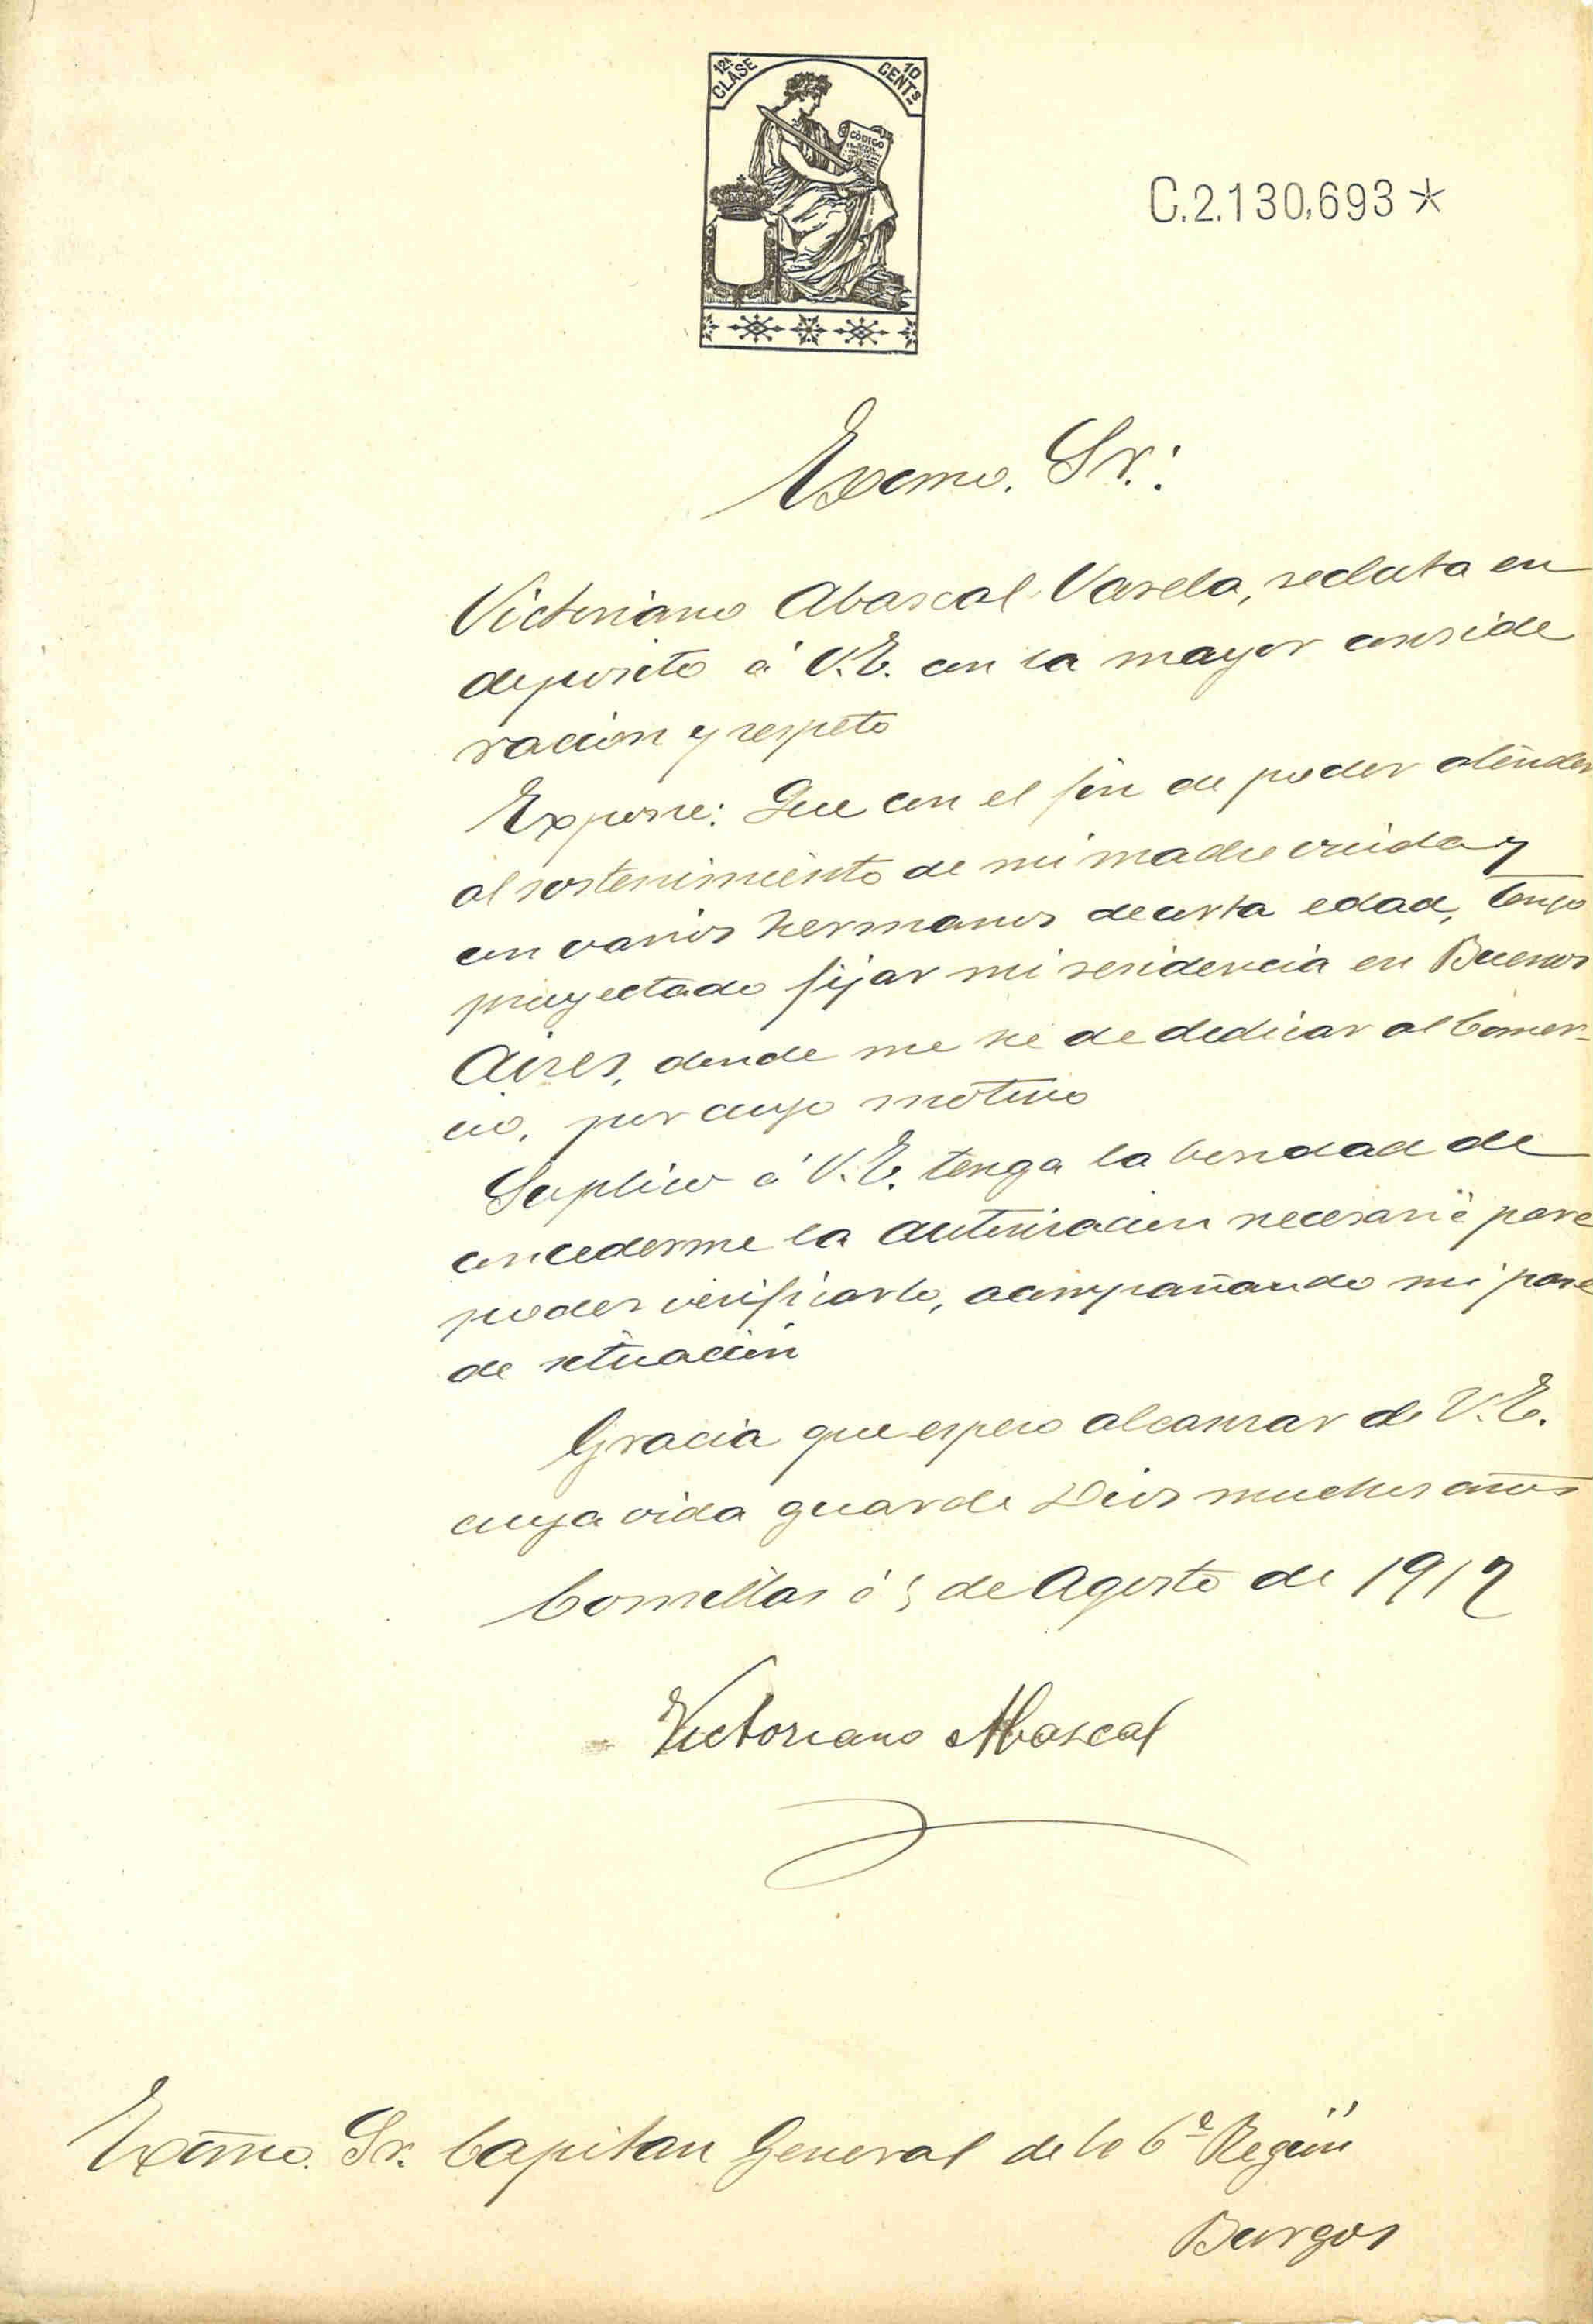 12ª CLASE
10 CENTs
CÓDIGO
C.2.130,693*
Excmo. Sr.:
Victoriano Abascal Varela, recluta en
deposito á V.E. con la mayor conside
racion y respeto
Expone: Que con el fin de poder atender
al sostenimiento de mi madre viuda y
con varios hermanos de corta edad, tengo
proyectado fijar mi residencia en Buenos
Aires, donde me he de dedicar al Comer-
cio, por cuyo motivo
Suplico á V.E. tenga la bondad de
concederme la autorizacion necesaria para
poder verificarlo, acompañando mi pase
de situación
Gracia que espero alcanzar de V.E.
cuya vida guarde Dios muchos años
Comillas á 5 de Agosto de 1912
Victoriano Abascal
Excmo. Sr. Capitan General de la 6ª Región
Burgos